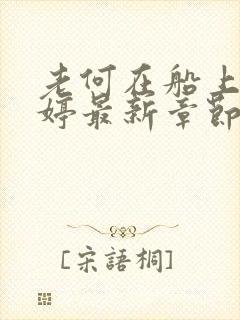 老何在船上
婷最新章節
[宋語桐]